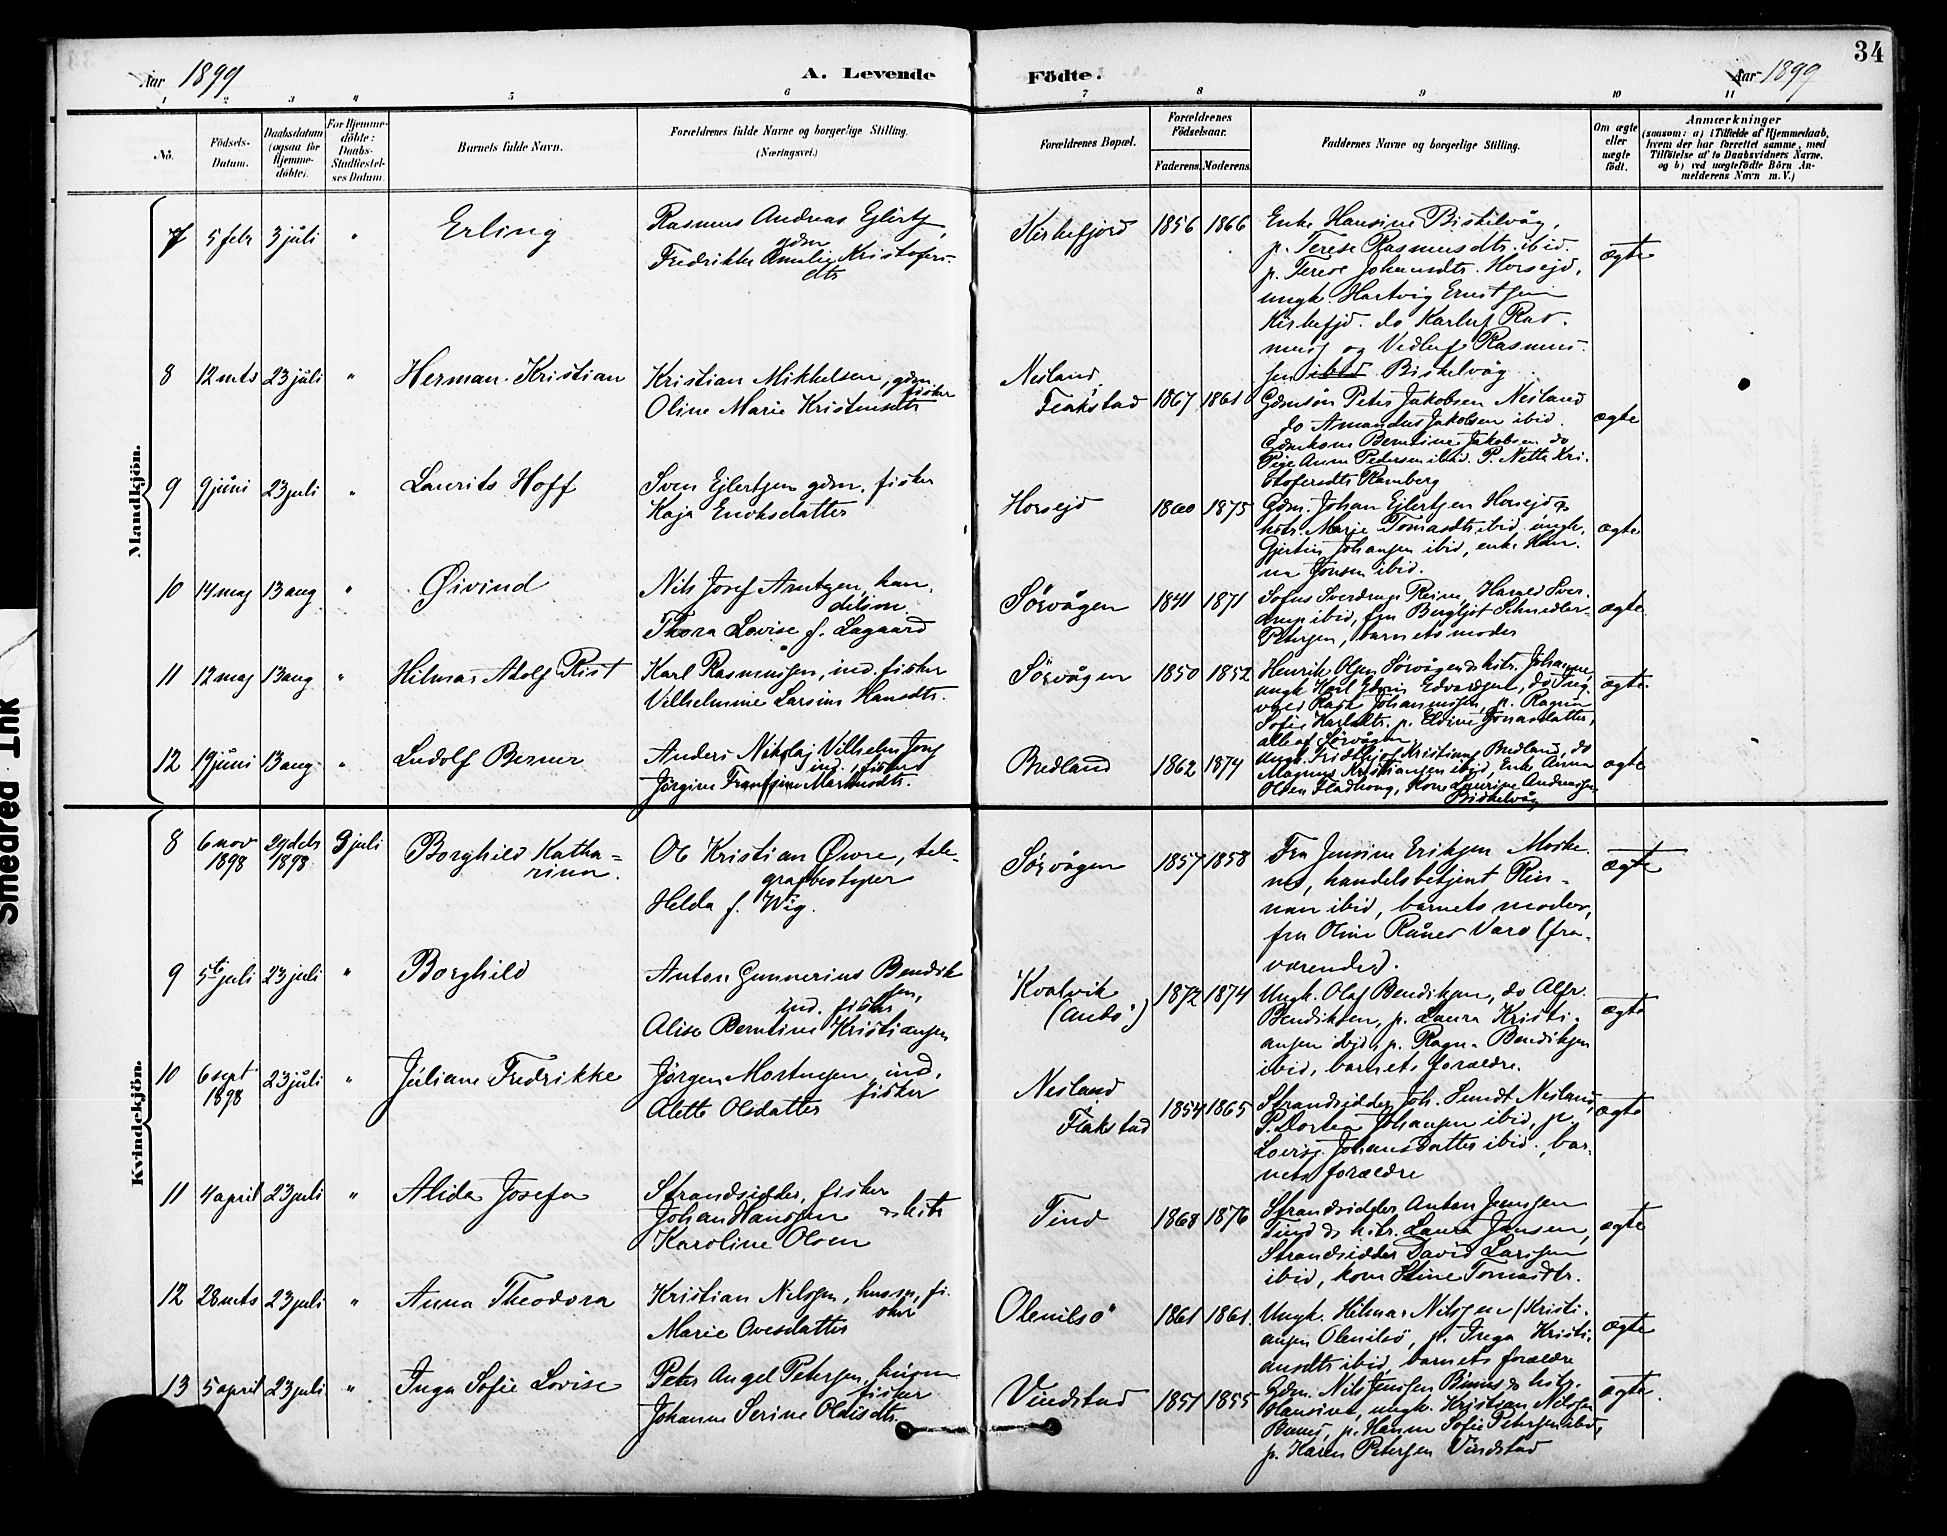 34
Aar 1899 A. Levende Födte. Aar 1899
1 2 3 4 5 6 7 8 9 10 11
No.
Födsels-
Datum.
Daabsdatum
(ogsaa for
Hjemme-
döbte).
For Hjemme-
döbte:
Daabs-
Stadfæstel-
ses Datum.
Barnets fulde Navn.
Forældrenes fulde Navne og borgerlige Stilling.
(Næringsvei.)
Forældrenes Bopæl.
Forældrenes
Födselsaar.
Faderens. Moderens.
Faddernes Navne og borgerlige Stilling.
Om ægte
eller
uægte
födt.
Anmærkninger
(saasom: a) i Tilfælde af Hjemmedaab,
hvem der har forrettet samme, med
Tilföielse af to Daabsvidners Navne,
og b) ved uægtefödte Börn An-
melderens Navn m. V.)
Mandkjön.
7 5 febr 3 juli " Erling
Rasmus Andreas Ejlertsj,
gdm
Fredrikke Amalie Kristofers-
dtr
Kirkefjord 1856 1866
Enke Hansine Biskelvåg,
p. Terese Rasmusdtr. ibid.
p. Terese Johansdtr. Horsejd,
ungk. Hartvig Ernstsen
Kirkefjd. do Karluf Ras-
muss og Vidluf Rasmus-
sen ibid Biskelvåg
ægte
8 12 mts 23 juli " Herman Kristian
Kristian Mikkelsen, gdm.
fisker
Oline Marie Kristensdtr
Nesland,
Flakstad 1867 1861
Gdmsøn Peter Jakobsen Nesland
do Amandus Jakobsen ibid.
Gdmkone Berntine Jakobsen do
Pige Anna Pedersen ibid. P. Nette Kri-
stofersdtr Ramberg
ægte
9 9 juni 23 juli " Laurits Hoff
Sven Ejlertsen gdm. fisker
Kaja Enoksdatter
Horsejd 1860 1875
Gdm. Johan Ejlertsen Horsejd &
hstr. Marie Tomasdtr ibid, ungk.
Gjertin Johansen ibid, enke Han-
na Jonsen ibid.
ægte
10 14 maj 13 aug " Øivind
Nils Josef Arntzen, han-
delsm.
Thora Lovise f. Lagaard
Sørvågen 1841 1871
Sofus Sverdrup Reine, Harald Sver-
drup ibid, frk Bergljot Schnedler-
Petersen, barnets moder
ægte
11 12 maj 13 aug " Hilmar Adolf Rist
Karl Rasmussen, ind. fisker
Vilhelmine Larsine Hansdtr.
Sørvågen 1850 1852
Henrik Olsen Sørvågen & hstr. Johanna,
ungk Karl Edvin Edvardsen, do Ing-
vald Rask Johannessen, p. Ragna
Sofie Karlsdtr. p. Eldine Jonasdatter,
alle af Sørvågen
ægte
12 19 juni 13 aug " Ludolf Berner
Anders Nikolaj Vilhelm Jons
ind. fisker
Jørgine Fransine Martinsdtr.
Bredland 1862 1874
Ungk. Fridthjof Kristians Bredland, do
Magnus Kristiansen ibid, Enke Anna
Olsen Fladhaug, Kone Laurine Andreassen
Biskelvåg
ægte
Kvindekjön.
8 6 nov 1898 29 decb 1898 9 juli Borghild Katha=
rina.
Ole Kristian Øvre, tele-
grafbestyrer
Helda f. Wig.
Sørvågen 1857 1858
Fru Jensine Eriksen Moske-
nes, handelsbetjent Rin-
nan ibid, barnets moder,
fru Oline Rånes Varo (fra-
værende).
ægte
9 5te juli 23 juli " Borghild
Anton Gunnerius Bendik
sen,
ind. fisker
Alise Berntine Kristiansen
Kvalvik
1872 1874
Ungk. Olaf Bendiksen, do Alfr.
Bendiksen, p. Laura Kristi-
ansen ibid, p. Ragna Bendiksen
ibid, barnets forældre.
ægte
10 6 sept 1898 23 juli " Juliane Fredrikke
Jørgen Mortensen, ind.
fisker
Alette Olsdatter
Nesland
Flakstad 1854 1865
Strandsidder Joh. Sundt Nesland,
P. Dortea Johansen ibid, p.
Lovise Johansdatter ibid., bar-
nets forældre
ægte
11 4 april 23 juli " Alida Josefa
Strandsidder, fisker
Johan Hanssen & hstr
Karoline Olsen
Tind 1868 1876
Strandsidder Anton Jensen
Tind & hstr. Laura Jensen,
Strandsidder David Larssen
ibid, kone Stine Tomasdtr.
ægte
12 28 mts 23 juli " Anna Theodora
Kristian Nilssen, husm, fi-
sker
Marie Ovesdatter
Olenilsö 1861 1861.
Ungk. Hilmar Nilssen (Kristi-
ansen Olenilsö, p. Inga Kristi-
ansdtr ibid, barnets forældre
ægte
13 5 april 23 juli " Inga Sofie Lovise
Peter Angel Petersen, husm
fisker
Johanna Serine Oldisdtr.
Vindstad 1851 1855
Gdm. Nils Jenssen Bunes & hstr.
Hansine, ungk. Kristian Nilssen
Bunes, p. Hanna Sofie Petersen ibid,
p. Karen Petersen Vindstad
ægte.
Smeared Ink